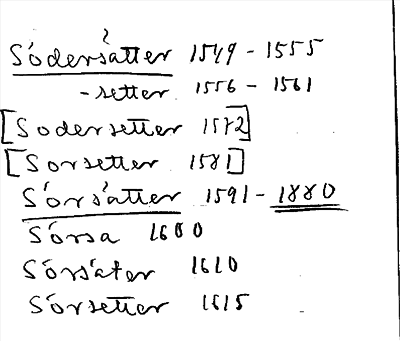 Södersätter 1549 - 1555
- setter 1556 - 1561
[Södersetter 1572]
[Sorsetter 1581]
Sörsätter 1591 - 1880
Sörsa 1600
Sörsäter 1610
Sörsetter 1615